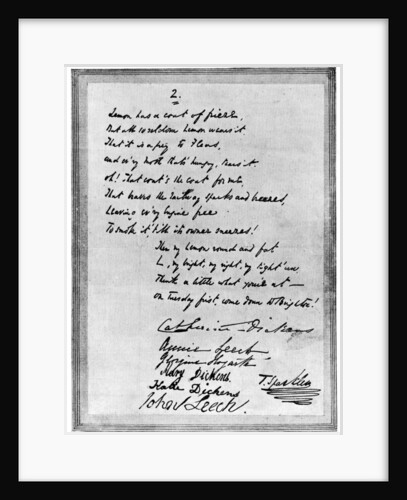 2.
Lemon has a coat of frieze,
But all so seldom Lemon wears it
That it is a prey to Fleas,
and ev'ry moth that's hungry, tears it.
oh! that coat's the coat for me,
That braves the railway sparks and breezes,
Leaving ev'ry Engine free
To smoke it, till its owner sneezes!
Then my Lemon round and fat
L, my bright, my right, my tight 'un,
Think a little what you're at —
on Tuesday first, come down to Brighton!
Catherine Dickens
Annie Leech
Georgina Hogarth
Mary Dickens.
Katie Dickens
John Leech.